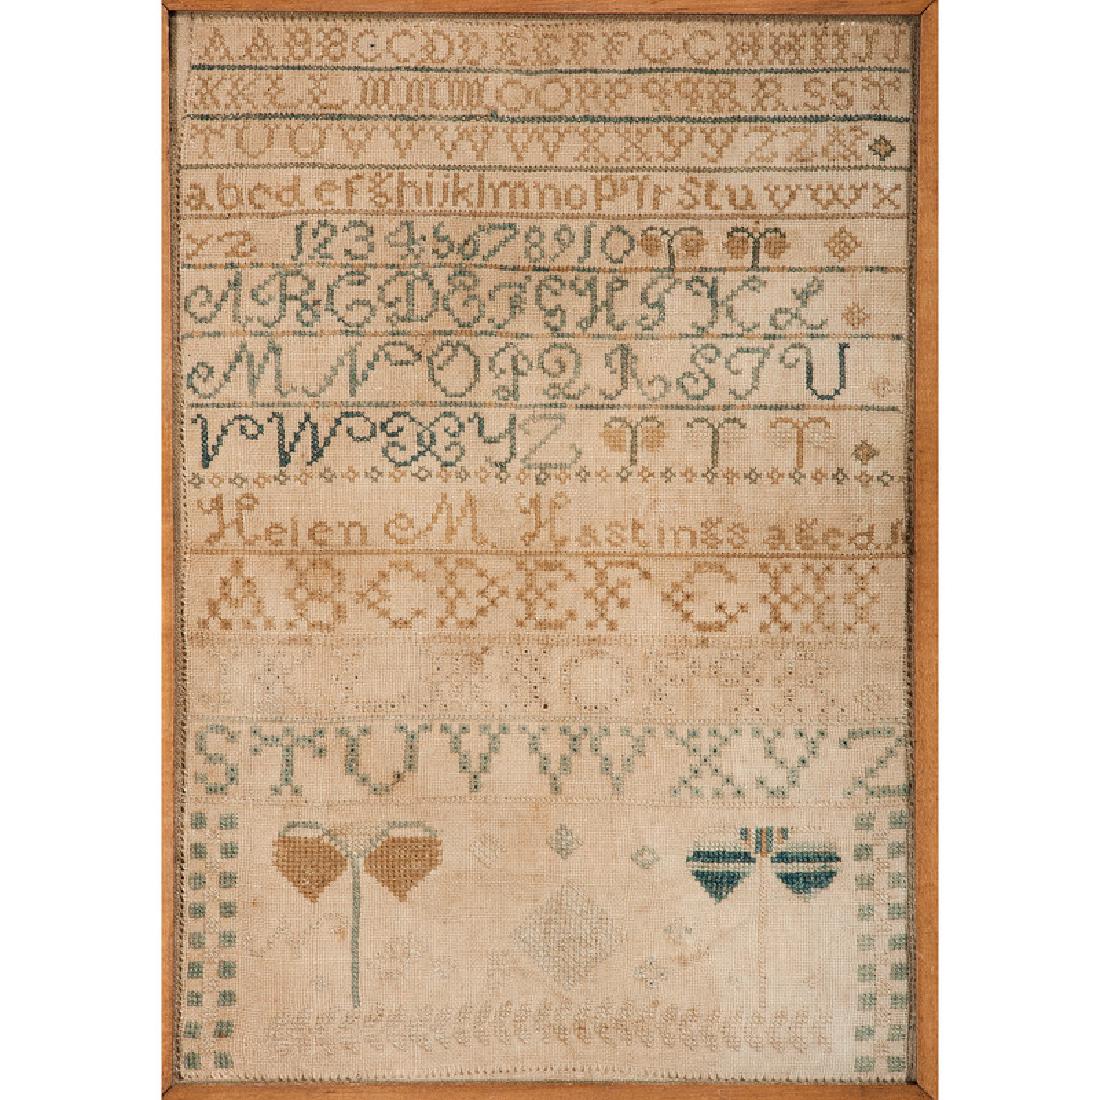 AABBCCDDEEFFGGHHIIJJ
KKLLMMNNOOPPQQRRSST
TUUVVWWXXYYZZ&
abcdefghijklmnopqrstuvwx
yz 12345678910
ABCDEFGHJKL
MNOPQRSTU
VWXYZ
Helen M Hastings aged
ABCDEFGHI
STUVWXYZ